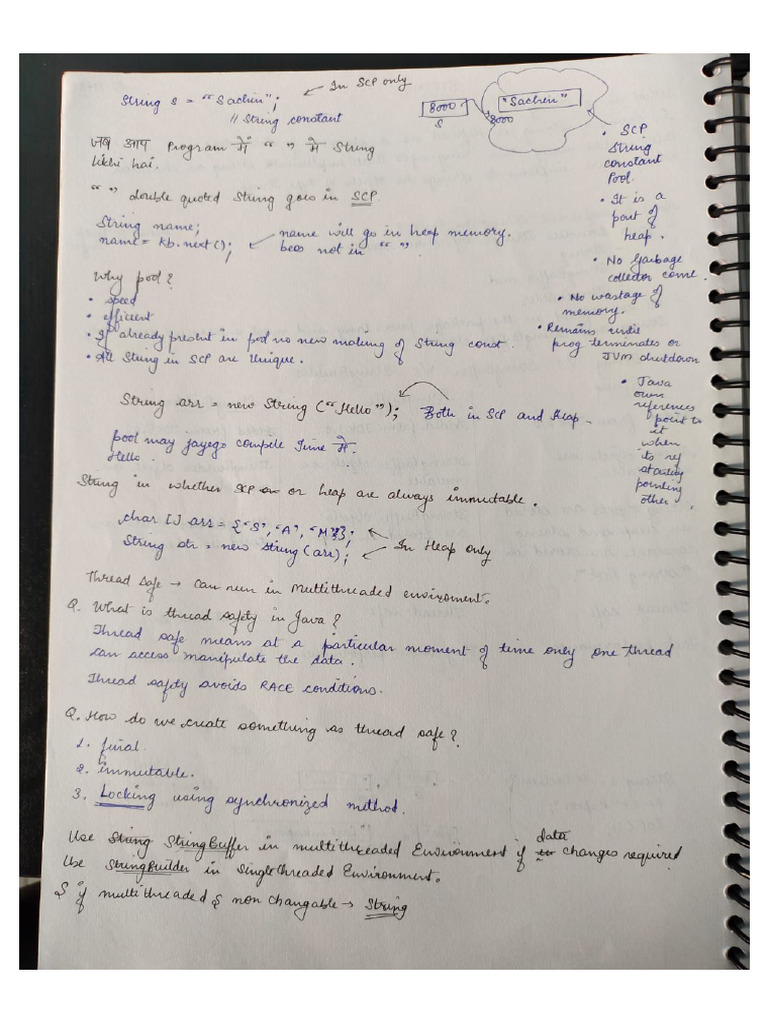 String s = "Sachin"; ← In SCP only
// String constant
8000
S
"Sachin"
8000
जब आप Program में " " में String
likhi hai.
" " double quoted String goes in SCP.
String name;
name = kb.next(); ← name will go in heap memory.
bcos not in " ".
• SCP
String
constant
Pool.
• It is a
part of
heap.
• No Garbage
collector come.
• No wastage of
memory.
• Remains until
prog terminates or
JVM shutdown
• Java
own
references
point to
it
when
its ref
starting
pointing
other.
Why pool?
• speed
• efficient
• If already present in pool no new making of String const.
• All String in SCP are Unique.
String arr = new String ("Hello"); Both in SCP and Heap.
pool may jayego compile Time में.
Hello.
String in whether SCP or or heap are always immutable.
char [] arr = {"S", "A", "M"};
String str = new String (arr); ← In Heap only
Thread Safe → Can run in Multithreaded enviroment.
Q. What is thread safety in Java?
Thread safe means at a particular moment of time only one thread
can access manipulate the data.
Thread safety avoids RACE conditions.
Q. How do we create something as thread safe?
1. final
2. immutable.
3. Locking using synchronized method.
Use String StringBuffer in multithreaded Environment if data changes required
Use StringBuilder in Singlethreaded Environment.
S if multithreaded & non changable → String